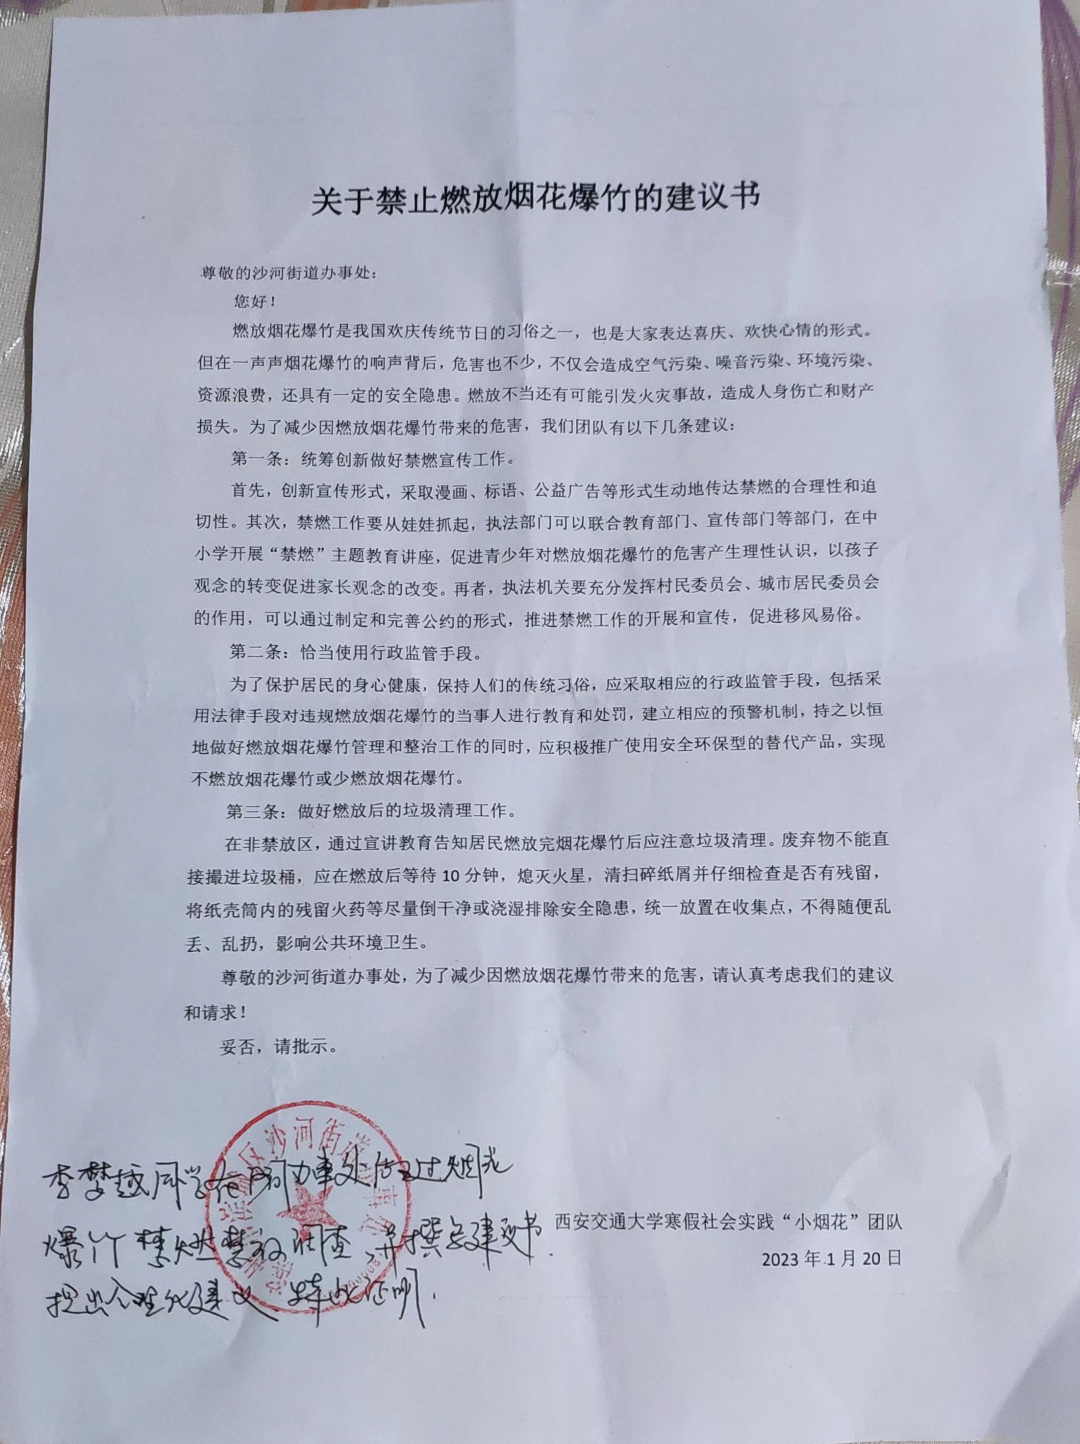 关于禁止燃放烟花爆竹的建议书
尊敬的沙河街道办事处：
您好！
燃放烟花爆竹是我国欢庆传统节日的习俗之一，也是大家表达喜庆、欢快心情的形式。
但在一声声烟花爆竹的响声背后，危害也不少，不仅会造成空气污染、噪音污染、环境污染、
资源浪费，还具有一定的安全隐患。燃放不当还有可能引发火灾事故，造成人身伤亡和财产
损失。为了减少因燃放烟花爆竹带来的危害，我们团队有以下几条建议：
第一条：统筹创新做好禁燃宣传工作。
首先，创新宣传形式，采取漫画、标语、公益广告等形式生动地传达禁燃的合理性和迫
切性。其次，禁燃工作要从娃娃抓起，执法部门可以联合教育部门、宣传部门等部门，在中
小学开展“禁燃”主题教育讲座，促进青少年对燃放烟花爆竹的危害产生理性认识，以孩子
观念的转变促进家长观念的改变。再者，执法机关要充分发挥村民委员会、城市居民委员会
的作用，可以通过制定和完善公约的形式，推进禁燃工作的开展和宣传，促进移风易俗。
第二条：恰当使用行政监管手段。
为了保护居民的身心健康，保持人们的传统习俗，应采取相应的行政监管手段，包括采
用法律手段对违规燃放烟花爆竹的当事人进行教育和处罚，建立相应的预警机制，持之以恒
地做好燃放烟花爆竹管理和整治工作的同时，应积极推广使用安全环保型的替代产品，实现
不燃放烟花爆竹或少燃放烟花爆竹。
第三条：做好燃放后的垃圾清理工作。
在非禁放区，通过宣讲教育告知居民燃放完烟花爆竹后应注意垃圾清理。废弃物不能直
接撮进垃圾桶，应在燃放后等待 10 分钟，熄灭火星，清扫碎纸屑并仔细检查是否有残留，
将纸壳筒内的残留火药等尽量倒干净或浇湿排除安全隐患，统一放置在收集点，不得随便乱
丢、乱扔，影响公共环境卫生。
尊敬的沙河街道办事处，为了减少因燃放烟花爆竹带来的危害，请认真考虑我们的建议
和请求！
妥否，请批示。
李梦越同学在沙河办事处 过烟花
爆竹禁燃禁放调查，并撰写建议书.
提出合理化建议，特此证明.
区沙河街道办事处
西安交通大学寒假社会实践“小烟花”团队
2023 年 1 月 20 日